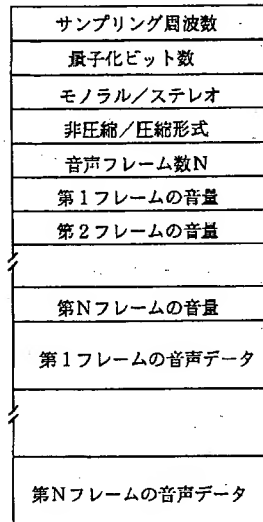 サンプリング周波数
量子化ビット数
モノラル／ステレオ
非圧縮／圧縮形式
音声フレーム数N
第1フレームの音量
第2フレームの音量
第Nフレームの音量
第1フレームの音声データ
第Nフレームの音声データ